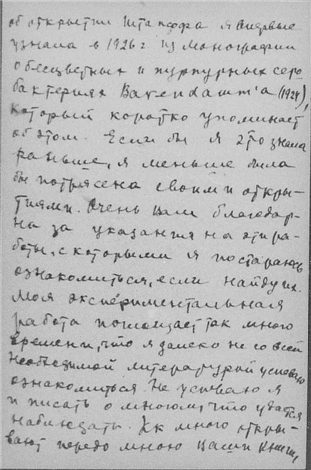 об открытии Штапффа я впервые
узнала в 1926 г из монографии
о бесцветных и пурпурных серо
бактериях Bavendamm'а (1924),
который коротко упоминает
об этом. Если бы я это знала
раньше, я меньше была
бы потрясена своими откры-
тиями. Очень Вам благодар-
на за указания на эти ра-
боты, с которыми я постараюсь
ознакомиться, если найду их.
Моя экспериментальная
работа поглощает так много
времени, что я далеко не со всей
необходимой литературой успеваю
ознакомиться. Не успеваю я
и писать о многом, что удается
наблюдать. Ах много откры-
вают передо мною Ваши книги,